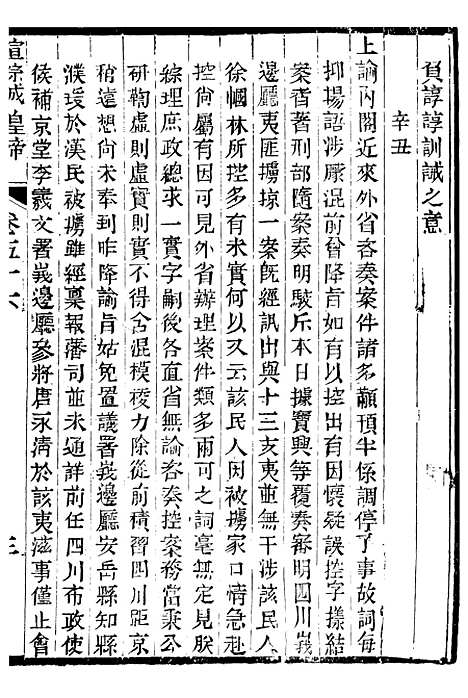 負諄諄訓誡之意
辛丑
上諭內閣近來外省咨奏案件諸多顢頇半係調停了事故詞每
抑揚語涉厭混前曾降旨如有以控出有因懷疑誤控字樣結
案者著刑部隨案奏明駁斥本日據寶興等覆奏審明四川峩
邊廳夷匪擄掠一案旣經訊出與十三支夷並無干涉該民人
徐幗林所控多有未實何以又云該民人因被擄家口情急赴
控尙屬有因外省辦理案件類多兩可之詞毫無定見朕
綜理庶政總求一實字嗣後各直省無論咨奏控案務當秉公
研鞫虛則虛實則實不得含混模棱力除從前積習四川距京
稍遠想尙未奉到昨降諭旨姑免置議署峩邊廳安岳縣知縣
濮瑗於漢民被擄雖經稟報藩司並未通詳前任四川布政使
候補京堂李羲文署峩邊廳參將唐永淸於該夷滋事僅止會
宣宗成皇帝
卷五十六
三